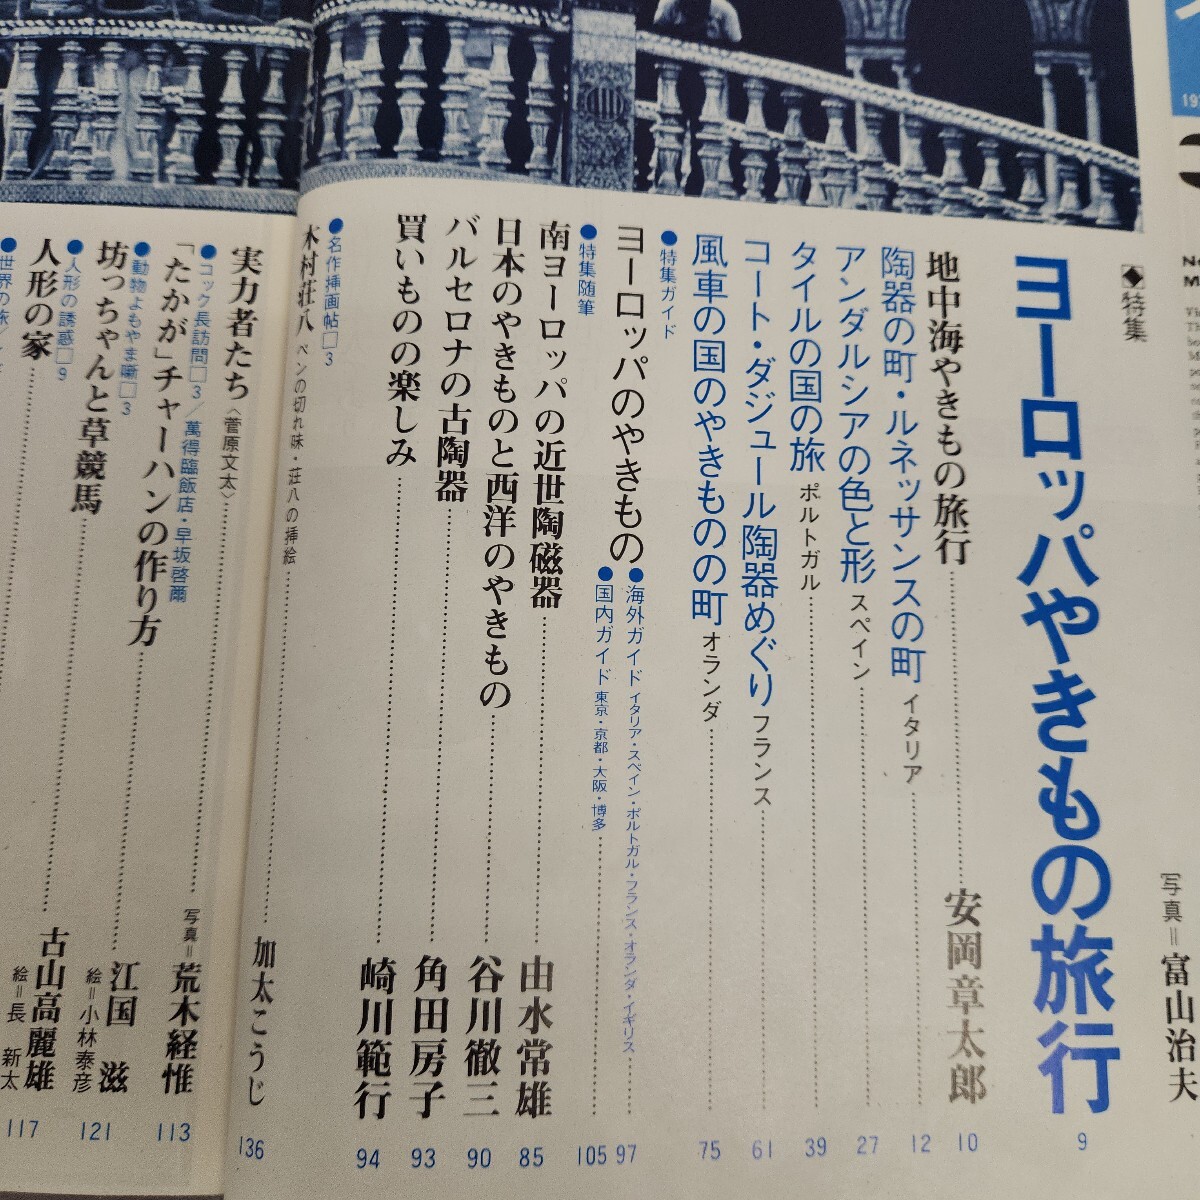 ◆特集
ヨーロッパやきものの旅行 9
写真=富山治夫
地中海やきもの旅行 安岡章太郎 10
陶器の町・ルネッサンスの町 イタリア 12
アンダルシアの色と形 スペイン 27
タイルの国の旅 ポルトガル 39
コート・ダジュール陶器めぐり フランス 61
風車の国のやきものの町 オランダ 75
●特集ガイド
ヨーロッパのやきもの
●海外ガイド イタリア・スペイン・ポルトガル・フランス・オランダ・イギリス 97
●国内ガイド 東京・京都・大阪・博多 105
●特集随筆
南ヨーロッパの近世陶磁器 由水常雄 85
日本のやきものと西洋のやきもの 谷川徹三 90
バルセロナの古陶器 角田房子 93
買いものの楽しみ 崎川範行 94
●名作挿画帖□3
木村荘八 ペンの切れ味・荘八の挿絵 加太こうじ 136
実力者たち〈菅原文太〉 写真=荒木経惟 113
●コック長訪問□3/萬得臨飯店・早坂啓爾
「たかが」チャーハンの作り方
●動物よもやま噺□3
坊っちゃんと草競馬 江国 滋 絵=小林泰彦 121
●人形の誘惑□9
人形の家 古山高麗雄 絵=長 新太 117
●世界の旅